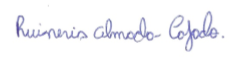 Ruisneris Almodo- Cofado.